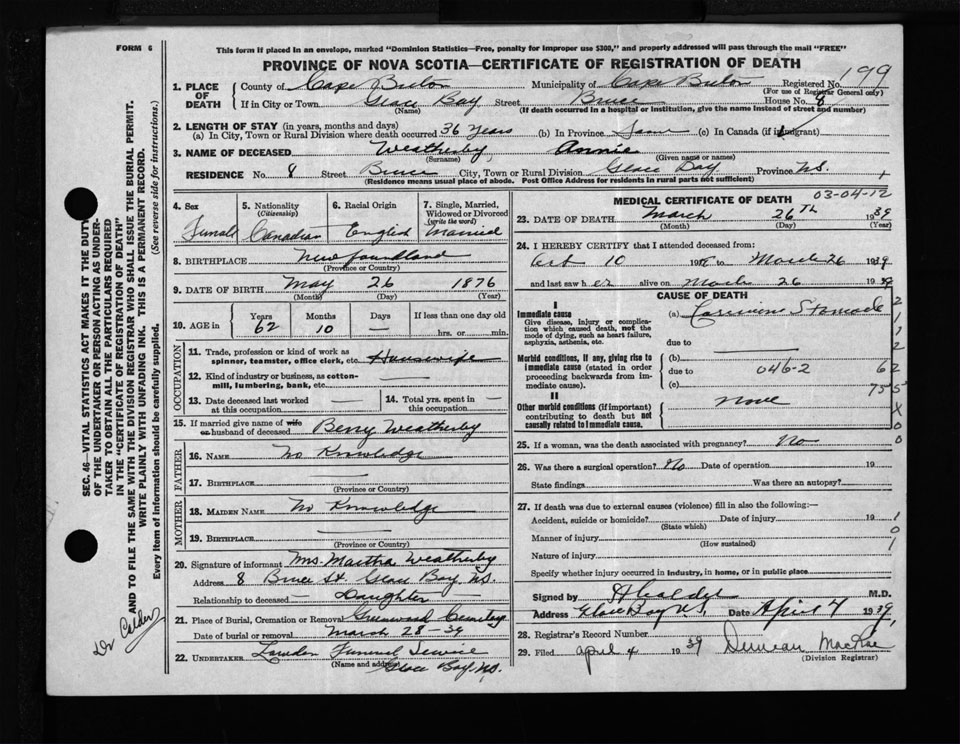 FORM 6
This form if placed in an envelope, marked "Dominion Statistics—Free, penalty for improper use $300," and properly addressed will pass through the mail "FREE"
PROVINCE OF NOVA SCOTIA—CERTIFICATE OF REGISTRATION OF DEATH
199
1. PLACE OF DEATH County of Cape Breton Municipality of Cape Breton Registered No.
(For use of Registrar General only)
If in City or Town Glace Bay Street Bruce House No. 8
(Name) (If death occurred in a hospital or institution, give the name instead of street and number)
2. LENGTH OF STAY (in years, months and days)
(a) In City, Town or Rural Division where death occurred 36 years (b) In Province Same (c) In Canada (if immigrant)
3. NAME OF DECEASED Weatherby Annie
(Surname) (Given name or names)
RESIDENCE No. 8 Street Bruce City, Town or Rural Division Glace Bay Province N.S.
(Residence means usual place of abode. Post Office Address for residents in rural parts not sufficient)
4. Sex Female
5. Nationality (Citizenship) Canadian
6. Racial Origin English
7. Single, Married, Widowed or Divorced (write the word) Married
8. BIRTHPLACE Newfoundland
(Province or Country)
9. DATE OF BIRTH May 26 1876
(Month) (Day) (Year)
10. AGE in Years Months Days If less than one day old
62 10 — hrs. or min.
OCCUPATION
11. Trade, profession or kind of work as spinner, teamster, office clerk, etc. Housewife
12. Kind of industry or business, as cotton-mill, lumbering, bank, etc. —
13. Date deceased last worked at this occupation —
14. Total yrs. spent in this occupation —
15. If married give name of wife or husband of deceased Berry Weatherby
FATHER
16. NAME No Knowledge
17. BIRTHPLACE —
(Province or Country)
MOTHER
18. MAIDEN NAME No Knowledge
19. BIRTHPLACE —
(Province or Country)
20. Signature of informant Mrs. Martha Weatherby
Address 8 Bruce St Glace Bay, N.S.
Relationship to deceased Daughter
21. Place of Burial, Cremation or Removal Greenwood Cemetery
Date of burial or removal March 28-39
22. UNDERTAKER Lowden Funeral Service
(Name and address) Glace Bay, N.S.
MEDICAL CERTIFICATE OF DEATH
03-04-12
23. DATE OF DEATH March 26TH 1939
(Month) (Day) (Year)
24. I HEREBY CERTIFY that I attended deceased from:
Oct 10 1938 to March 26 1939
and last saw her alive on March 26 1939
CAUSE OF DEATH
I
Immediate cause
Give disease, injury or complication which caused death, not the mode of dying, such as heart failure, asphyxia, asthenia, etc.
(a) Carcinoma Stomach
due to
Morbid conditions, if any, giving rise to immediate cause (stated in order proceeding backwards from immediate cause).
(b)
due to 046-2
(c)
II
Other morbid conditions (if important) contributing to death but not causally related to immediate cause.
None
25. If a woman, was the death associated with pregnancy? No
26. Was there a surgical operation? No Date of operation 19
State findings Was there an autopsy?
27. If death was due to external causes (violence) fill in also the following:—
Accident, suicide or homicide? Date of injury 19
(State which)
Manner of injury
(How sustained)
Nature of injury
Specify whether injury occurred in industry, in home, or in public place
Signed by M.D.
Address Glace Bay N.S. Date April 4 1939
28. Registrar's Record Number
29. Filed April 4 1939 Duncan MacRae
(Division Registrar)
SEC. 46—VITAL STATISTICS ACT MAKES IT THE DUTY
OF THE UNDERTAKER OR PERSON ACTING AS UNDER-
TAKER TO OBTAIN ALL THE PARTICULARS REQUIRED
IN THE "CERTIFICATE OF REGISTRATION OF DEATH"
AND TO FILE THE SAME WITH THE DIVISION REGISTRAR WHO SHALL ISSUE THE BURIAL PERMIT.
WRITE PLAINLY WITH UNFADING INK. THIS IS A PERMANENT RECORD.
Every item of information should be carefully supplied. (See reverse side for instructions.)
Dr Calder